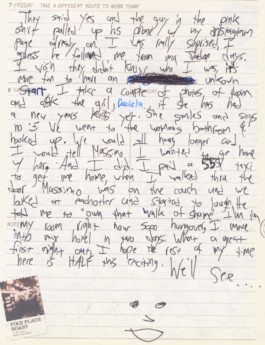 7 FRIDAY TAKE A DIFFERENT ROUTE TO WORK TODAY
They said yes and the guy in the pink
shirt pulled up his phone w/ my instagram
page already on. I was really suprised I
guess he followed me from my days.
I wish they didn't know who I was its
more fun to have an unknown
start. I take a couple of photos of them
and ask the girl Daniela if she has had
a new years kiss yet. She smiles and says
no :) We went to the womans bathroom &
hooked up. We would all hang longer and
I would tell Massimo I wanted to go home
w/ her. And I did. I paid a 55 taxi
to get me home, when I walked thru the
door Massimo was on the couch and we
looked at eachother and started to laugh. He
told me to "own that walk of shame". I'm in
my room right now sooo hungover, I move
into my hotel in two days. What a great
first night out, I hope the rest of my time
here is HALF this exciting. We'll
See....
PIKE PLACE
ROAST